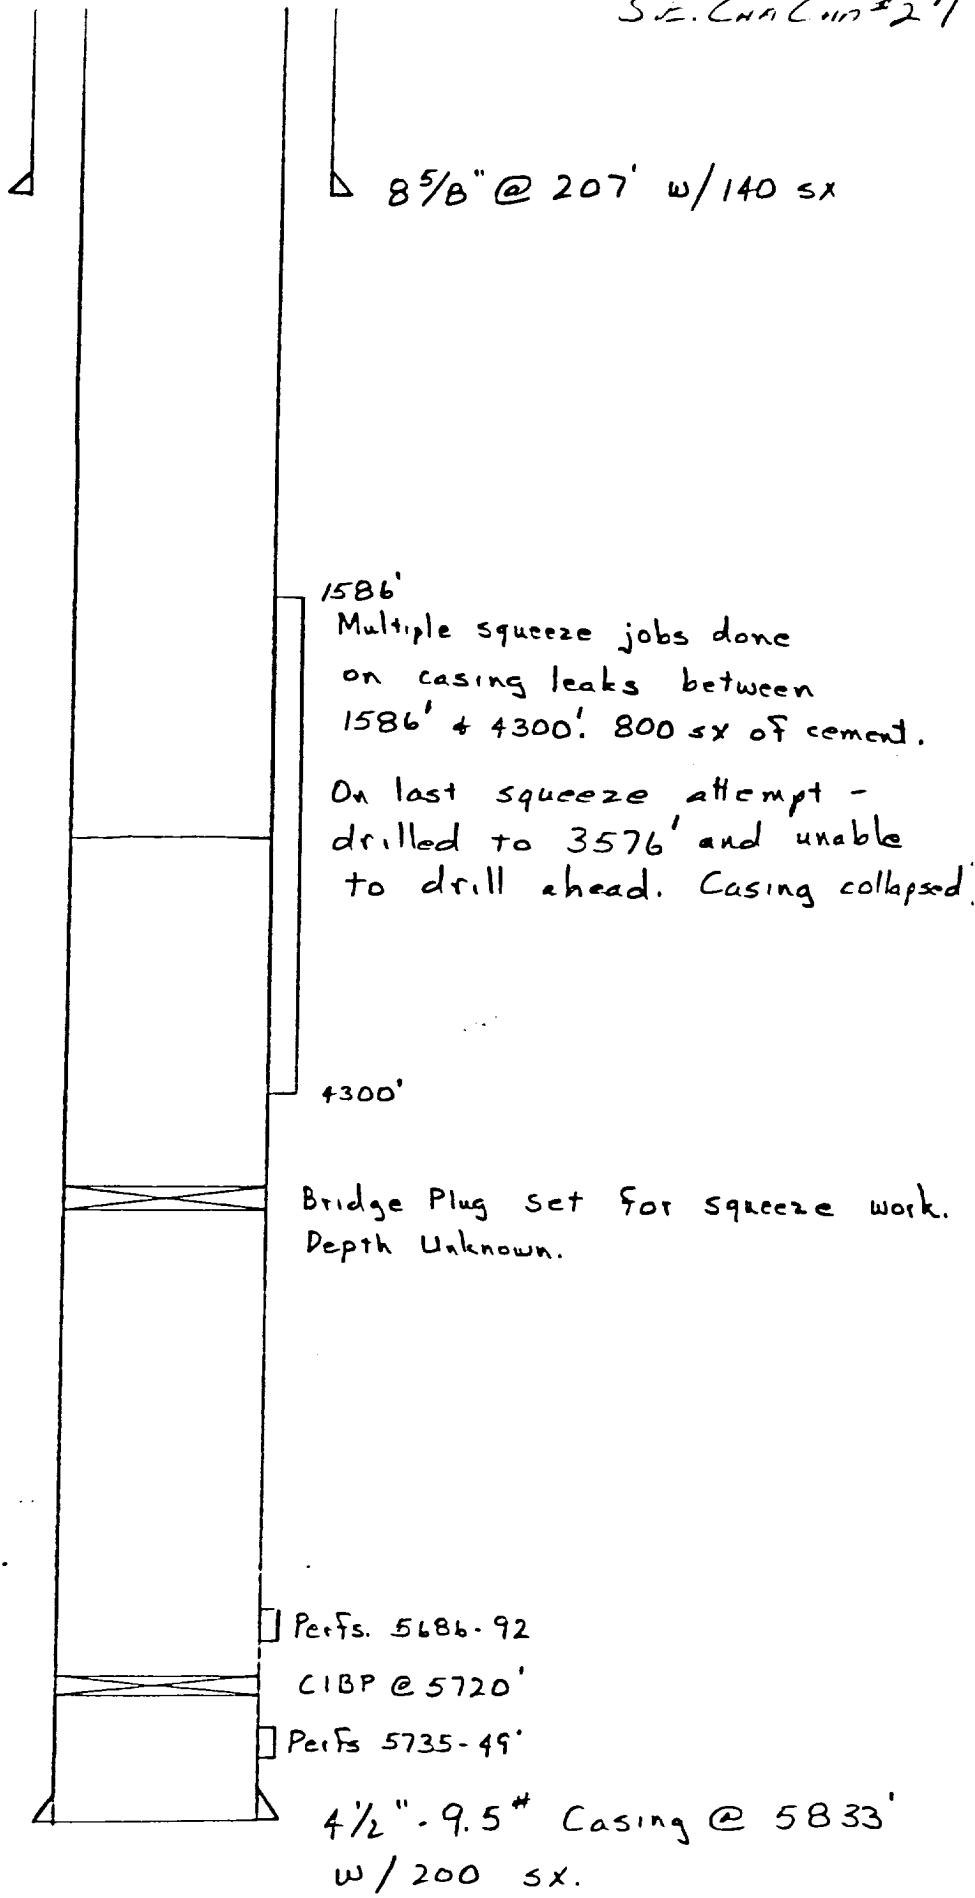 8 5/8" @ 207' w/140 sx
1586'
Multiple squeeze jobs done
on casing leaks between
1586' & 4300'. 800 sx of cement.
On last squeeze attempt -
drilled to 3576' and unable
to drill ahead. Casing collapsed.
4300'
Bridge Plug set for squeeze work.
Depth Unknown.
Perfs. 5686-92
CIBP @ 5720'
Perfs 5735-49'
4 1/2" - 9.5# Casing @ 5833'
w/ 200 sx.